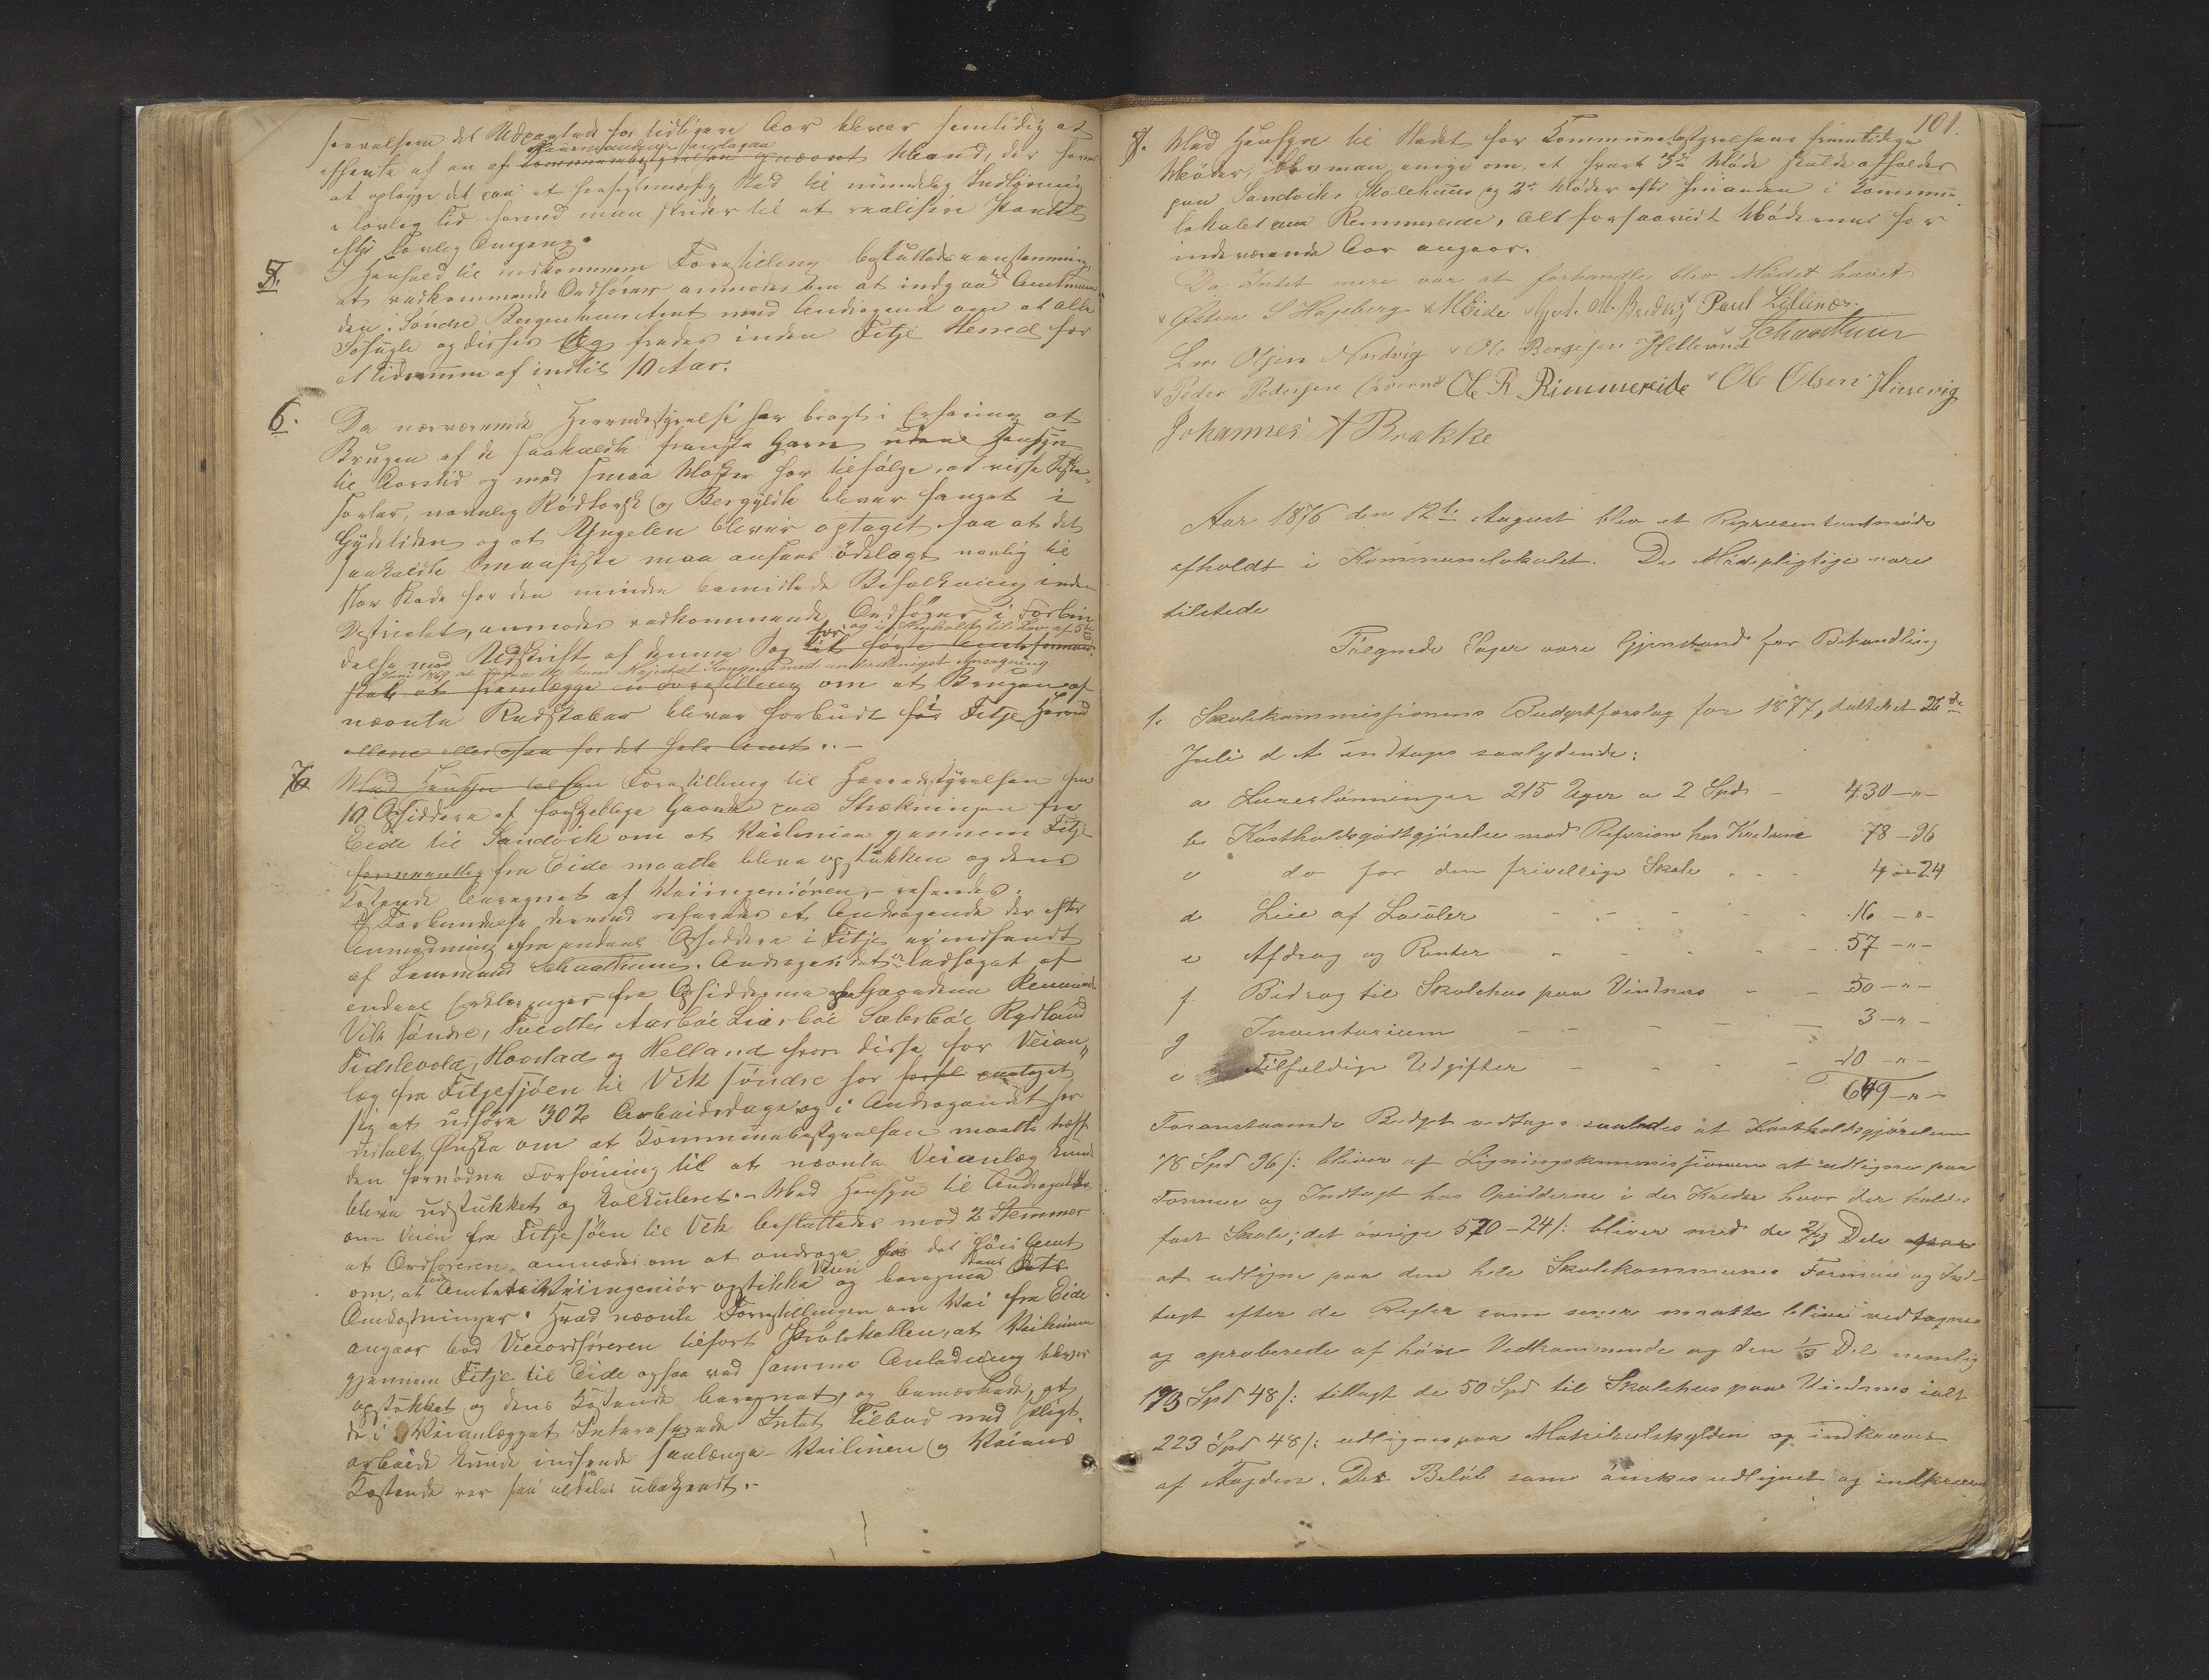 det Udpantede for tidligere Aar bliver samtidig at
Formandskabet antagen
afhente af en af Kommunebestyrelsen nævnt Mand, der haver
at oplægge det paa et hensigtsmæssig Sted til nimindelig Indløsning
i lovlig Tid hvorved man skrider til at realisere Pantet
efter lovlig Omgang.
5. I Henhold til indkommen Forestilling besluttedes eenstemmig,
at vedkommende Ordfører anmodes om at indgaa til Amtmanden
den i Søndre Bergenhus Amt med Andragende om at alle
Søfugle og disses Æg fredes inden Fitje Herred for
et Tidsrum af indtil 10 Aar.
6. Da nærværende Herredsstyrelse har bragt i Erfaring at
Brugen af de saakaldte franske Garn uden Hensyn
til Aarstid og med smaa Masker har tilfølge, at visse Fiske-
sorter, navnlig Rødtorsk og Berggylte bliver fanget i
Gydetiden og at Yngelen bliver optaget saa at det
saakaldte Smaafiske maa ansees ødelagt navnlig til
stor Skade for den mindre bemidlede Befolkning inden
Distriktet, anmodes vedkommende Ordfører i Forbin
og i Henhold til Lov af 5te
delse med Udskrift af denne Sag
Juni 1869 at hans Majestæt Kongen med underdanigst Ansøgning
skab at fremlægge en Forestilling om at Brugen af
nævnte Redskaber bliver forbudt i Fitje Herred
allene eller ogsaa for det hele Amt. -
7. Med Hensyn til en Forestilling til Herredsstyrelsen fra
10 Opsiddere af forskjellige Gaarde paa Strækningen fra
Eide til Sandvik om at Veilinien gjennem Fitje
formentlig fra Eide maatte blive opstukken og dens
Kostende beregnet af Veiingeniøren, - refereredes.
I Forbindelse dermed refereredes et Andragende der efter
Anmodning fra endeel Opsiddere i Fitje er indsendt
af Lensmand Schaathun. Andragendet er ledsaget af
endeel Erklæringer fra Opsidderne paa Gaardene Remmereid
Vik søndre, Tveotter Aarbøe Liarbøe Sælerbøe Rydland
Tidslevold, Hovstad og Helland hvori disse for Veian„
læg fra Fitjesjøen til Vik søndre har forpl antaget
sig at udføre 302 Arbeidsdage og i Andragendet har
udtalt Ønske om at Kommunebestyrelsen maatte træffe
den fornødne Forføining til at nævnte Veianlæg kunde
blive udstukket og kalkuleret. - Med Hensyn til Andragendet
om Veien fra Fitjesjøen til Vik besluttedes mod 2 Stemmer
at Ordføreren anmodes om at andrage hos det høie Amt
om, at Amtets Veiingeniør opstikke Veien og beregne dens
Omkostninger. Hvad nævnte Forestillingen om Vei fra Eide
angaar bød Viceordføreren tilført Protokollen, at Veilinien
gjennem Fitje til Eide ogsaa ved samme Anledning bliver
opstukket og dens Kostende beregnet, og bemærkede, at
de i Veianlægget Interesserede Intet Tilbud med Pligt-
arbeide kunde indsende saalænge Veilinien og Veiens
Kostende var saa aldeles ubekjendt. -
101.
8. Med Hensyn til Stedet for Kommunebestyrelsens fremtidige
Møder, blev man enige om, at hvert 3die Møde skulde afholdes
paa Sandvik, Skolehuus og 2de Møder efter hinanden i Kommune
lokalet paa Remmereide, Alt forsaavidt Møderne for
indeværende Aar angaar.
Da Intet mere var at forhandle blev Mødet hævet
Østen S Hageberg M Eide Gjert M. Bredvig Paul Lillenæs.
Lars Olsen Nordvig Ole Bergesen Hellerud Schaathun
Peder Pedersen Ole R. Rimmereide Ole Olsen Hinrevig
Johannes A Brække
Aar 1876 den 12te August blev et Repræsentantmøde
afholdt i Kommunelokalet. De Mødepligtige vare
tilstede
Følgende Sager vare Gjenstand for Behandling
1. Skolekommissionens Budgetforslag for 1877, dateret 26de
Juli d. A. indtages saalydende:
a Lærerlønninger 215 Uger a 2 Spd - 430 - „ -
b. Kostholdsgodtgjørelse mod Refusion hos Kredsene 78 - 96
c do for den frivillige Skole . . - 4 - 24
d Leie af Localer - - - - - 16 - „ -
e Afdrag og Renter - - - - 57 - „ -
f. Bidrag til Skolehus paa Vindnæs - - 50 - „ -
g Inventarium - - - - - 3 - „ -
e Tilfældige Udgifter - - - - 10 - „ -
649 - „ -
Foranstaaende Budget vedtages saaledes at Kostholdsgjørelsen
78 Spd 96 /: bliver af Ligningskommissionen at udligne paa
Formue og Indtægt hos Opsidderne i de Kredse hvor der holdes
fast Skole; det øvrige 570 - 24 /: bliver med de 2/3 Dele
at udligne paa den hele Skolekommunes Formue og Ind-
tægt efter de Regler som senere maatte blive vedtagne
og aproberede af høie Vedkommende og den 1/3 Del nemlig
173 Spd 48 /: tillagt de 50 Spd til Skolehus paa Vindnæs ialt
223 Spd 48 /: udlignes paa Matrikulskylden og indkræves
af Fogden. Det Beløb som ønskes udlignet og indkrævet